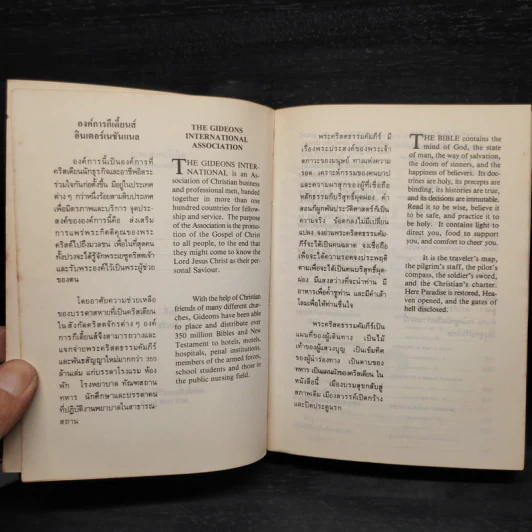 องค์การกีเดี้ยนส์
อินเตอร์เนชั่นแนล
องค์การนี้เป็นองค์การที่
คริสเตียนนักธุรกิจและอาชีพอิสระ
ร่วมใจกันก่อตั้งขึ้น มีอยู่ในประเทศ
ต่าง ๆ กว่าหนึ่งร้อยสามสิบประเทศ
เพื่อมิตรภาพและบริการ จุดประ-
สงค์ขององค์การนี้คือ ส่งเสริม
การแพร่พระกิตติคุณของพระ
คริสต์ไปถึงมวลชน เพื่อในที่สุดคน
ทั้งปวงจะได้รู้จักพระเยซูคริสต์เจ้า
และรับพระองค์ไว้เป็นพระผู้ช่วย
ของตน
โดยอาศัยความช่วยเหลือ
ของบรรดาสหายที่เป็นคริสเตียน
ในสังกัดคริสตจักรต่าง ๆ องค์
การกีเดี้ยนส์จึงสามารถวางและ
แจกจ่ายพระคริสตธรรมคัมภีร์
และพันธสัญญาใหม่มากกว่า 350
ล้านเล่ม แก่บรรดาโรงแรม ห้อง
พัก โรงพยาบาล ทัณฑสถาน
ทหาร นักศึกษาและบรรดาคน
ที่ปฏิบัติงานพยาบาลในสาธารณ-
สถาน
THE GIDEONS
INTERNATIONAL
ASSOCIATION
THE GIDEONS INTER-
NATIONAL is an As-
sociation of Christian business
and professional men, banded
together in more than one
hundred countries for fellow-
ship and service. The purpose
of the Association is the promo-
tion of the Gospel of Christ
to all people, to the end that
they might come to know the
Lord Jesus Christ as their per-
sonal Saviour.
With the help of Christian
friends of many different chur-
ches, Gideons have been able
to place and distribute over
350 million Bibles and New
Testament to hotels, motels,
hospitals, penal institutions,
members of the armed forces,
school students and those in
the public nursing field.
พระคริสตธรรมคัมภีร์ มี
เรื่องพระประสงค์ของพระเจ้า
สภาวะของมนุษย์ ทางแห่งความ
รอด เคราะห์กรรมของคนบาป
และความผาสุกของผู้ที่เชื่อถือ
หลักธรรมก็บริสุทธิ์ผุดผ่อง คำ
สอนก็ผูกพันประวัติศาสตร์ก็เป็น
ความจริง ข้อตกลงไม่มีเปลี่ยน
แปลง จงอ่านพระคริสตธรรมคัม-
ภีร์จะได้เป็นคนฉลาด จงเชื่อถือ
เพื่อจะได้ความรอดจงประพฤติ
ตามเพื่อจะได้เป็นคนบริสุทธิ์ผุด-
ผ่อง มีแสงสว่างที่จะนำท่าน มี
อาหารเพื่อค้ำชูท่าน และมีคำเล้า
โลมเพื่อให้ท่านชื่นใจ
พระคริสตธรรมคัมภีร์เป็น
แผนที่ของผู้เดินทาง เป็นไม้
เท้าของผู้แสวงบุญ เป็นเข็มทิศ
ของผู้นำร่องทาง เป็นดาบของ
ทหาร เป็นแผนผังของคริสเตียน ใน
หนังสือนี้ เมืองบรมสุขกลับสู่
สภาพเดิม เมืองสวรรค์เปิดกว้าง
และปิดประตูนรก
THE BIBLE contains the
mind of God, the state
of man, the way of salvation,
the doom of sinners, and the
happiness of believers. Its doc-
trines are holy, its precepts are
binding, its histories are true,
and its decisions are immutable.
Read it to be wise, believe it
to be safe, and practice it to
be holy. It contains light to
direct you, food to support
you, and comfort to cheer you.
It is the traveler's map,
the pilgrim's staff, the pilot's
compass, the soldier's sword,
and the Christian's charter.
Here Paradise is restored, Heav-
en opened, and the gates of
hell disclosed.